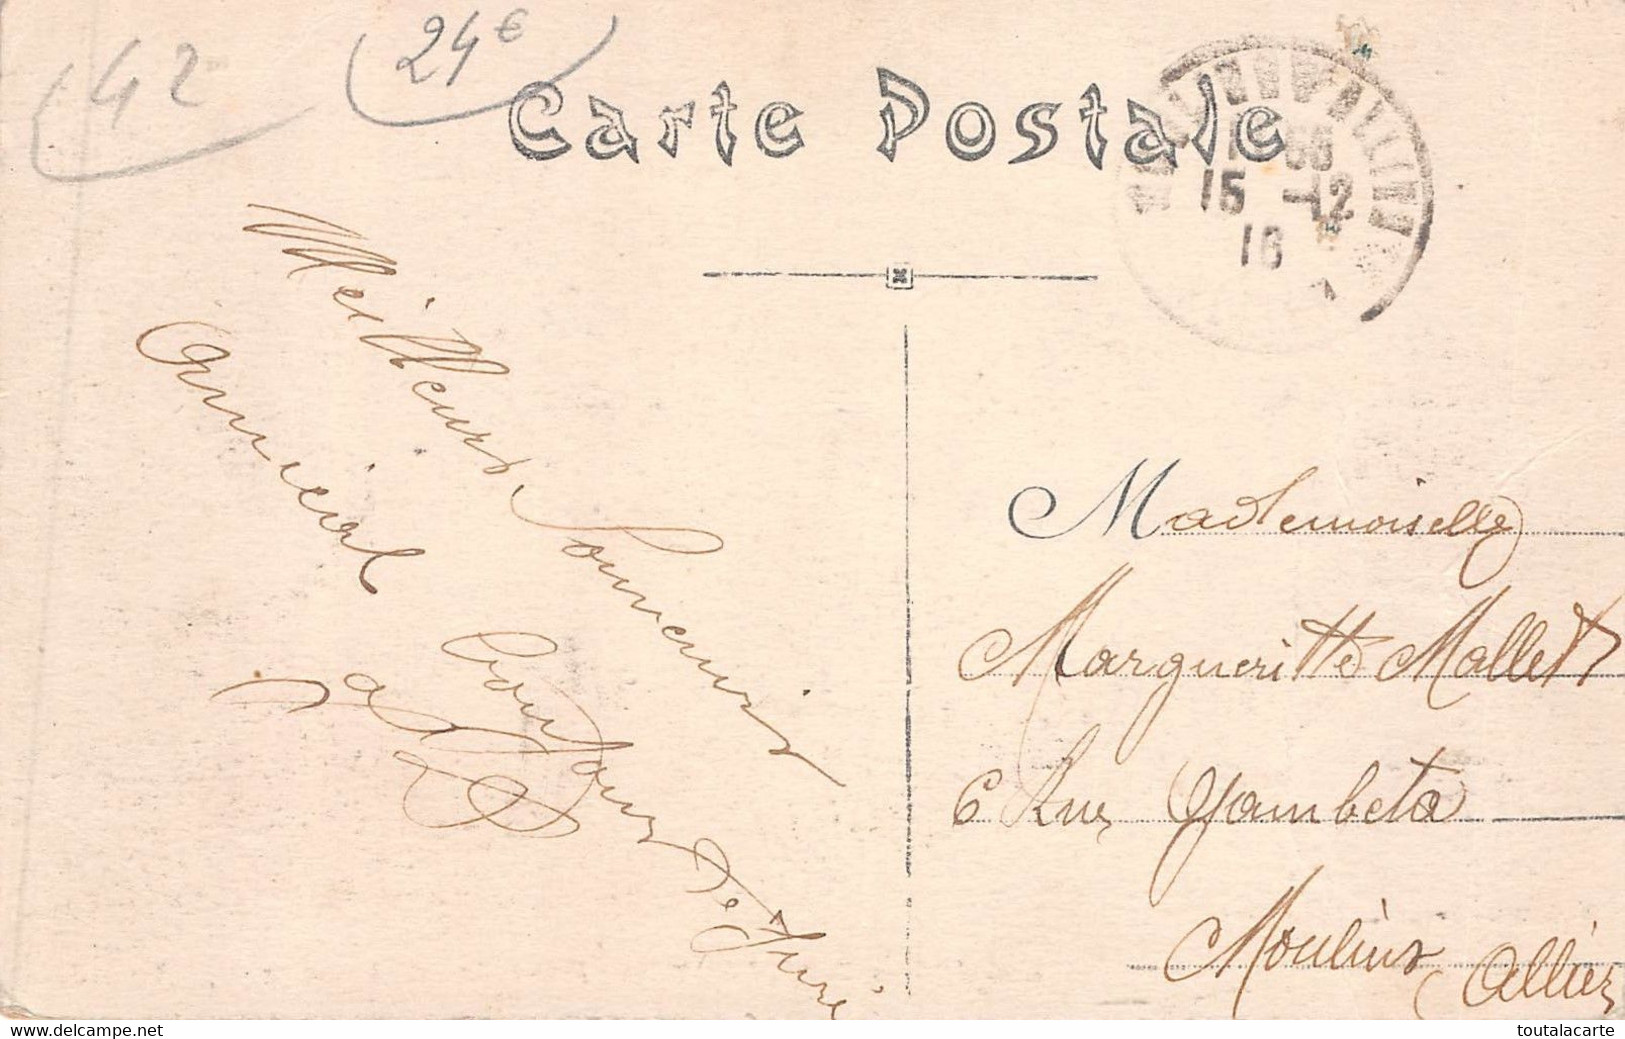 42
24€
Carte Postale
15 -12
16
Meilleurs Souvenirs
Amical
Mademoiselle
Margueritte Mallet
6 Rue Gambeta
Moulins Allier
www.delcampe.net
toutalacarte